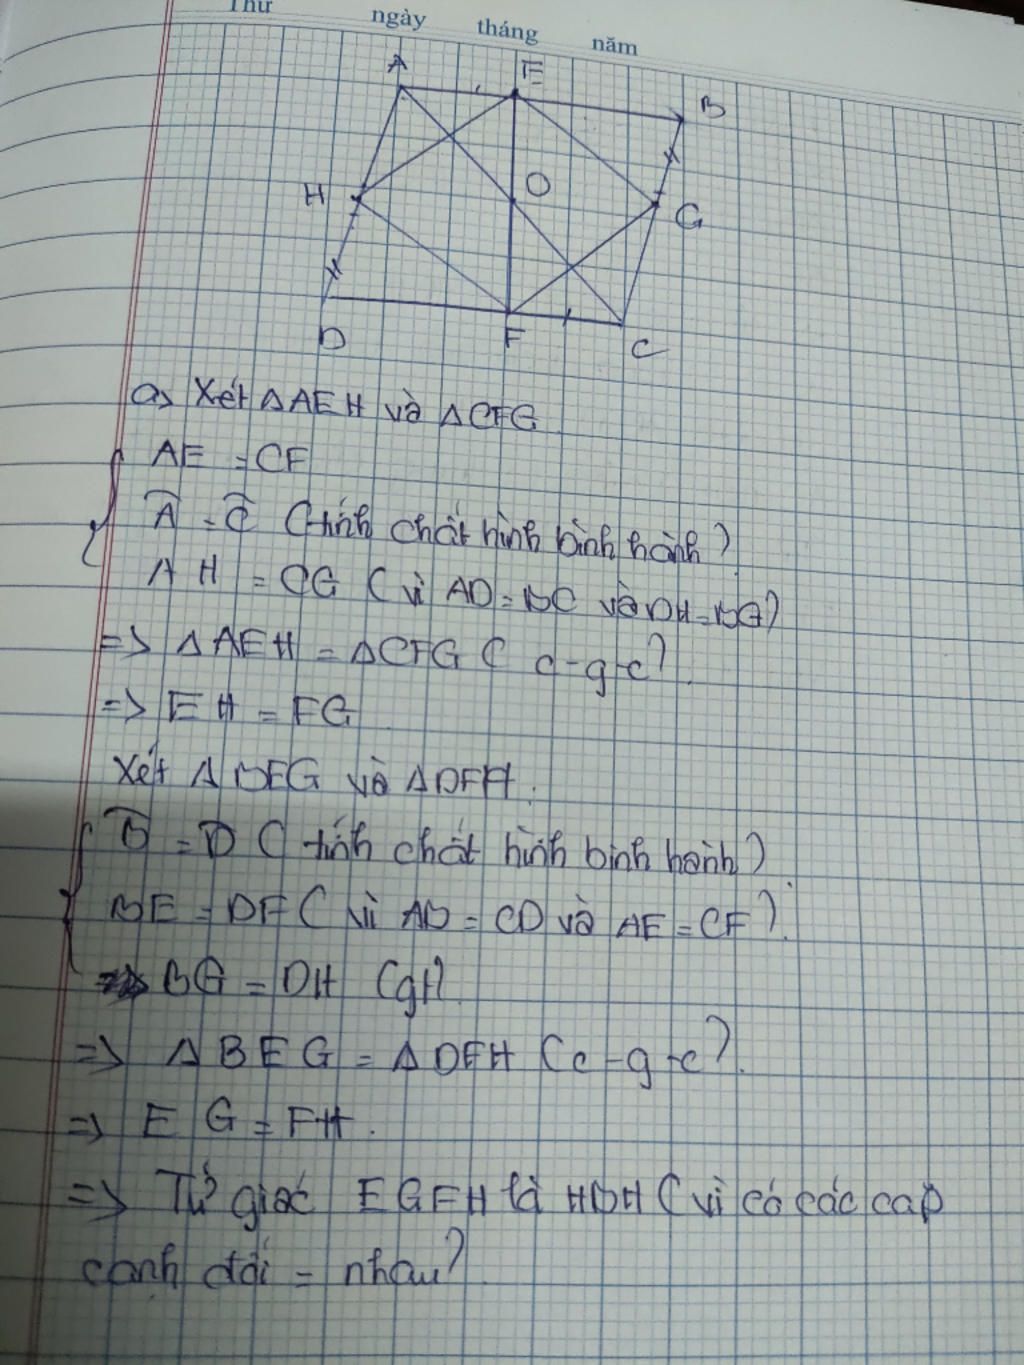 Thứ ngày tháng năm
A E B
H O G
D F C
a, Xét ΔAEH và ΔCFG
AE = CF
Â = Ĉ (tính chất hình bình hành)
AH = CG (vì AD = BC và DH = BG)
=> ΔAEH = ΔCFG (c-g-c).
=> EH = FG
Xét ΔBEG và ΔDFH.
B̂ = D̂ (tính chất hình bình hành)
BE = DF (vì AB = CD và AE = CF).
BG = DH (gt).
=> ΔBEG = ΔDFH (c-g-c).
=> EG = FH.
=> Tứ giác EGFH là HBH (vì có các cặp
cạnh đối = nhau).